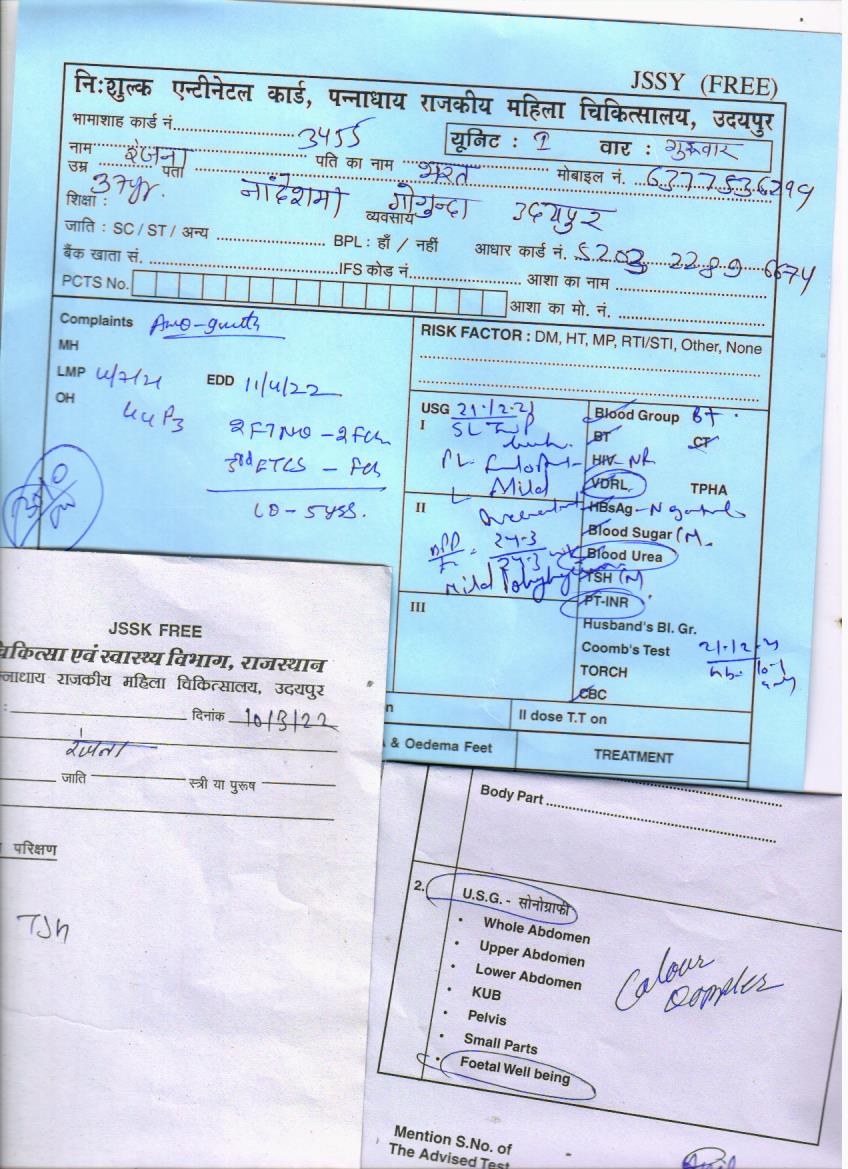 JSSY (FREE)
निःशुल्क एन्टीनेटल कार्ड, पन्नाधाय राजकीय महिला चिकित्सालय, उदयपुर
भामाशाह कार्ड नं. 3455 यूनिट : 1 वार : गुरूवार
नाम रंजना पति का नाम भरत मोबाइल नं.
उम्र 37yr. पता नांदेशमा गोगुन्दा उदयपुर
शिक्षा : व्यवसाय
जाति : SC / ST / अन्य BPL : हाँ / नहीं आधार कार्ड नं. 5203 2289 6674
बैंक खाता सं. IFS कोड नं. आशा का नाम
PCTS No. आशा का मो. नं.
Complaints
RISK FACTOR : DM, HT, MP, RTI/STI, Other, None
MH
LMP 4/7/21 EDD 11/4/22
OH
G4P3
2FTND
LD - 5yrs.
USG 21-12-21
I
Mild
II
24-3
Mild
III
Blood Group B+
BT CT
HIV- NR
VDRL TPHA
HBsAg-
Blood Sugar (N)
Blood Urea
TSH (N)
PT-INR
Husband's Bl. Gr.
Coomb's Test 21-12-21
TORCH
CBC
II dose T.T on
& Oedema Feet TREATMENT
JSSK FREE
चिकित्सा एवं स्वास्थ्य विभाग, राजस्थान
पन्नाधाय राजकीय महिला चिकित्सालय, उदयपुर
दिनांक 10/3/22
रंजना
जाति स्त्री या पुरूष
परिक्षण
TSH
Body Part
2. U.S.G. - सोनोग्राफी
• Whole Abdomen
• Upper Abdomen
• Lower Abdomen
• KUB
• Pelvis
• Small Parts
• Foetal Well being
Colour
Doppler
Mention S.No. of
The Advised Test